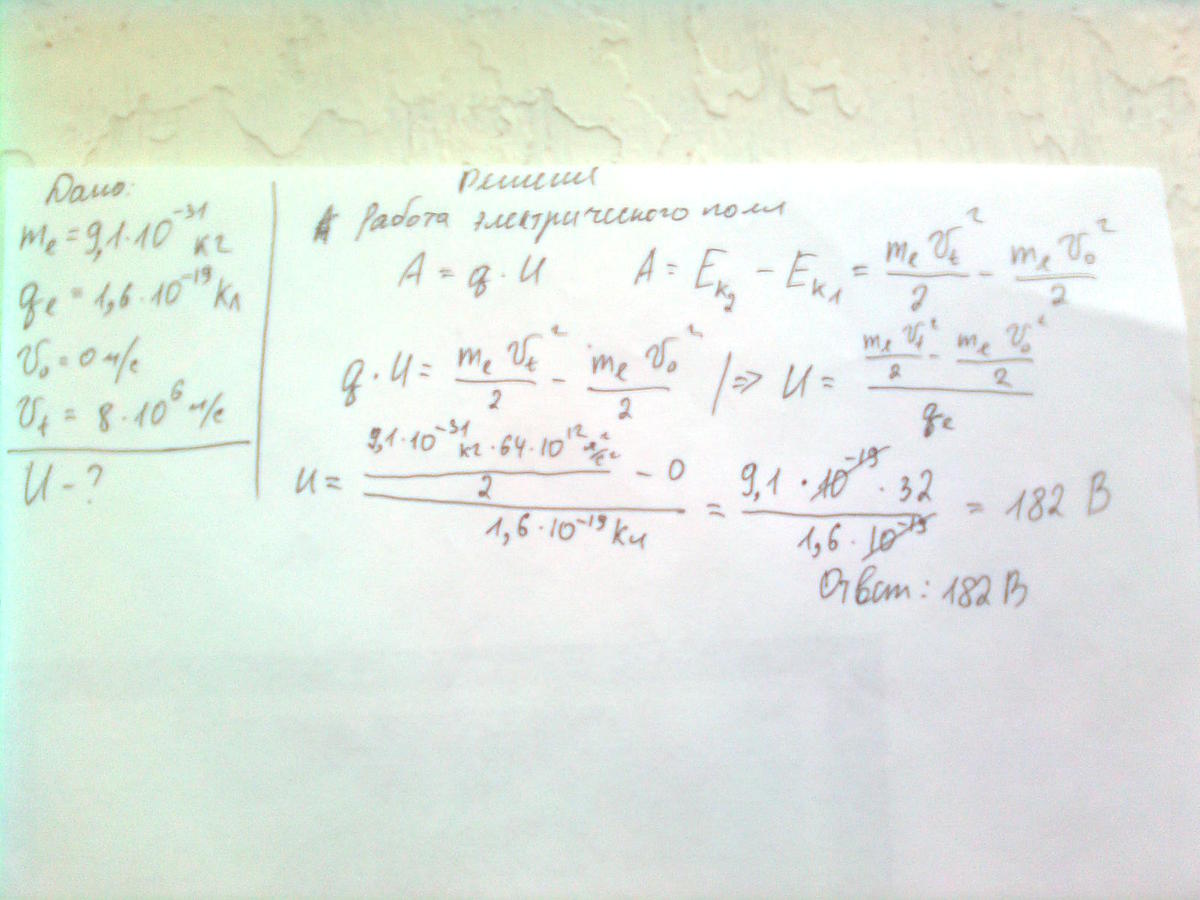 Дано:
mₑ = 9,1·10⁻³¹ кг
qₑ = 1,6·10⁻¹⁹ Кл
v₀ = 0 м/с
vₜ = 8·10⁶ м/с
U - ?
Решения
Работа электрического поля
A = q·U    A = Eₖ₂ - Eₖ₁ = mₑvₜ²/2 - mₑv₀²/2
q·U = mₑvₜ²/2 - mₑv₀²/2 | => U = (mₑvₜ²/2 - mₑv₀²/2)/qₑ
U = (9,1·10⁻³¹ кг·64·10¹² м²/с²/2 - 0)/(1,6·10⁻¹⁹ Кл) = (9,1·10⁻¹⁹·32)/(1,6·10⁻¹⁹) = 182 В
Ответ: 182 В